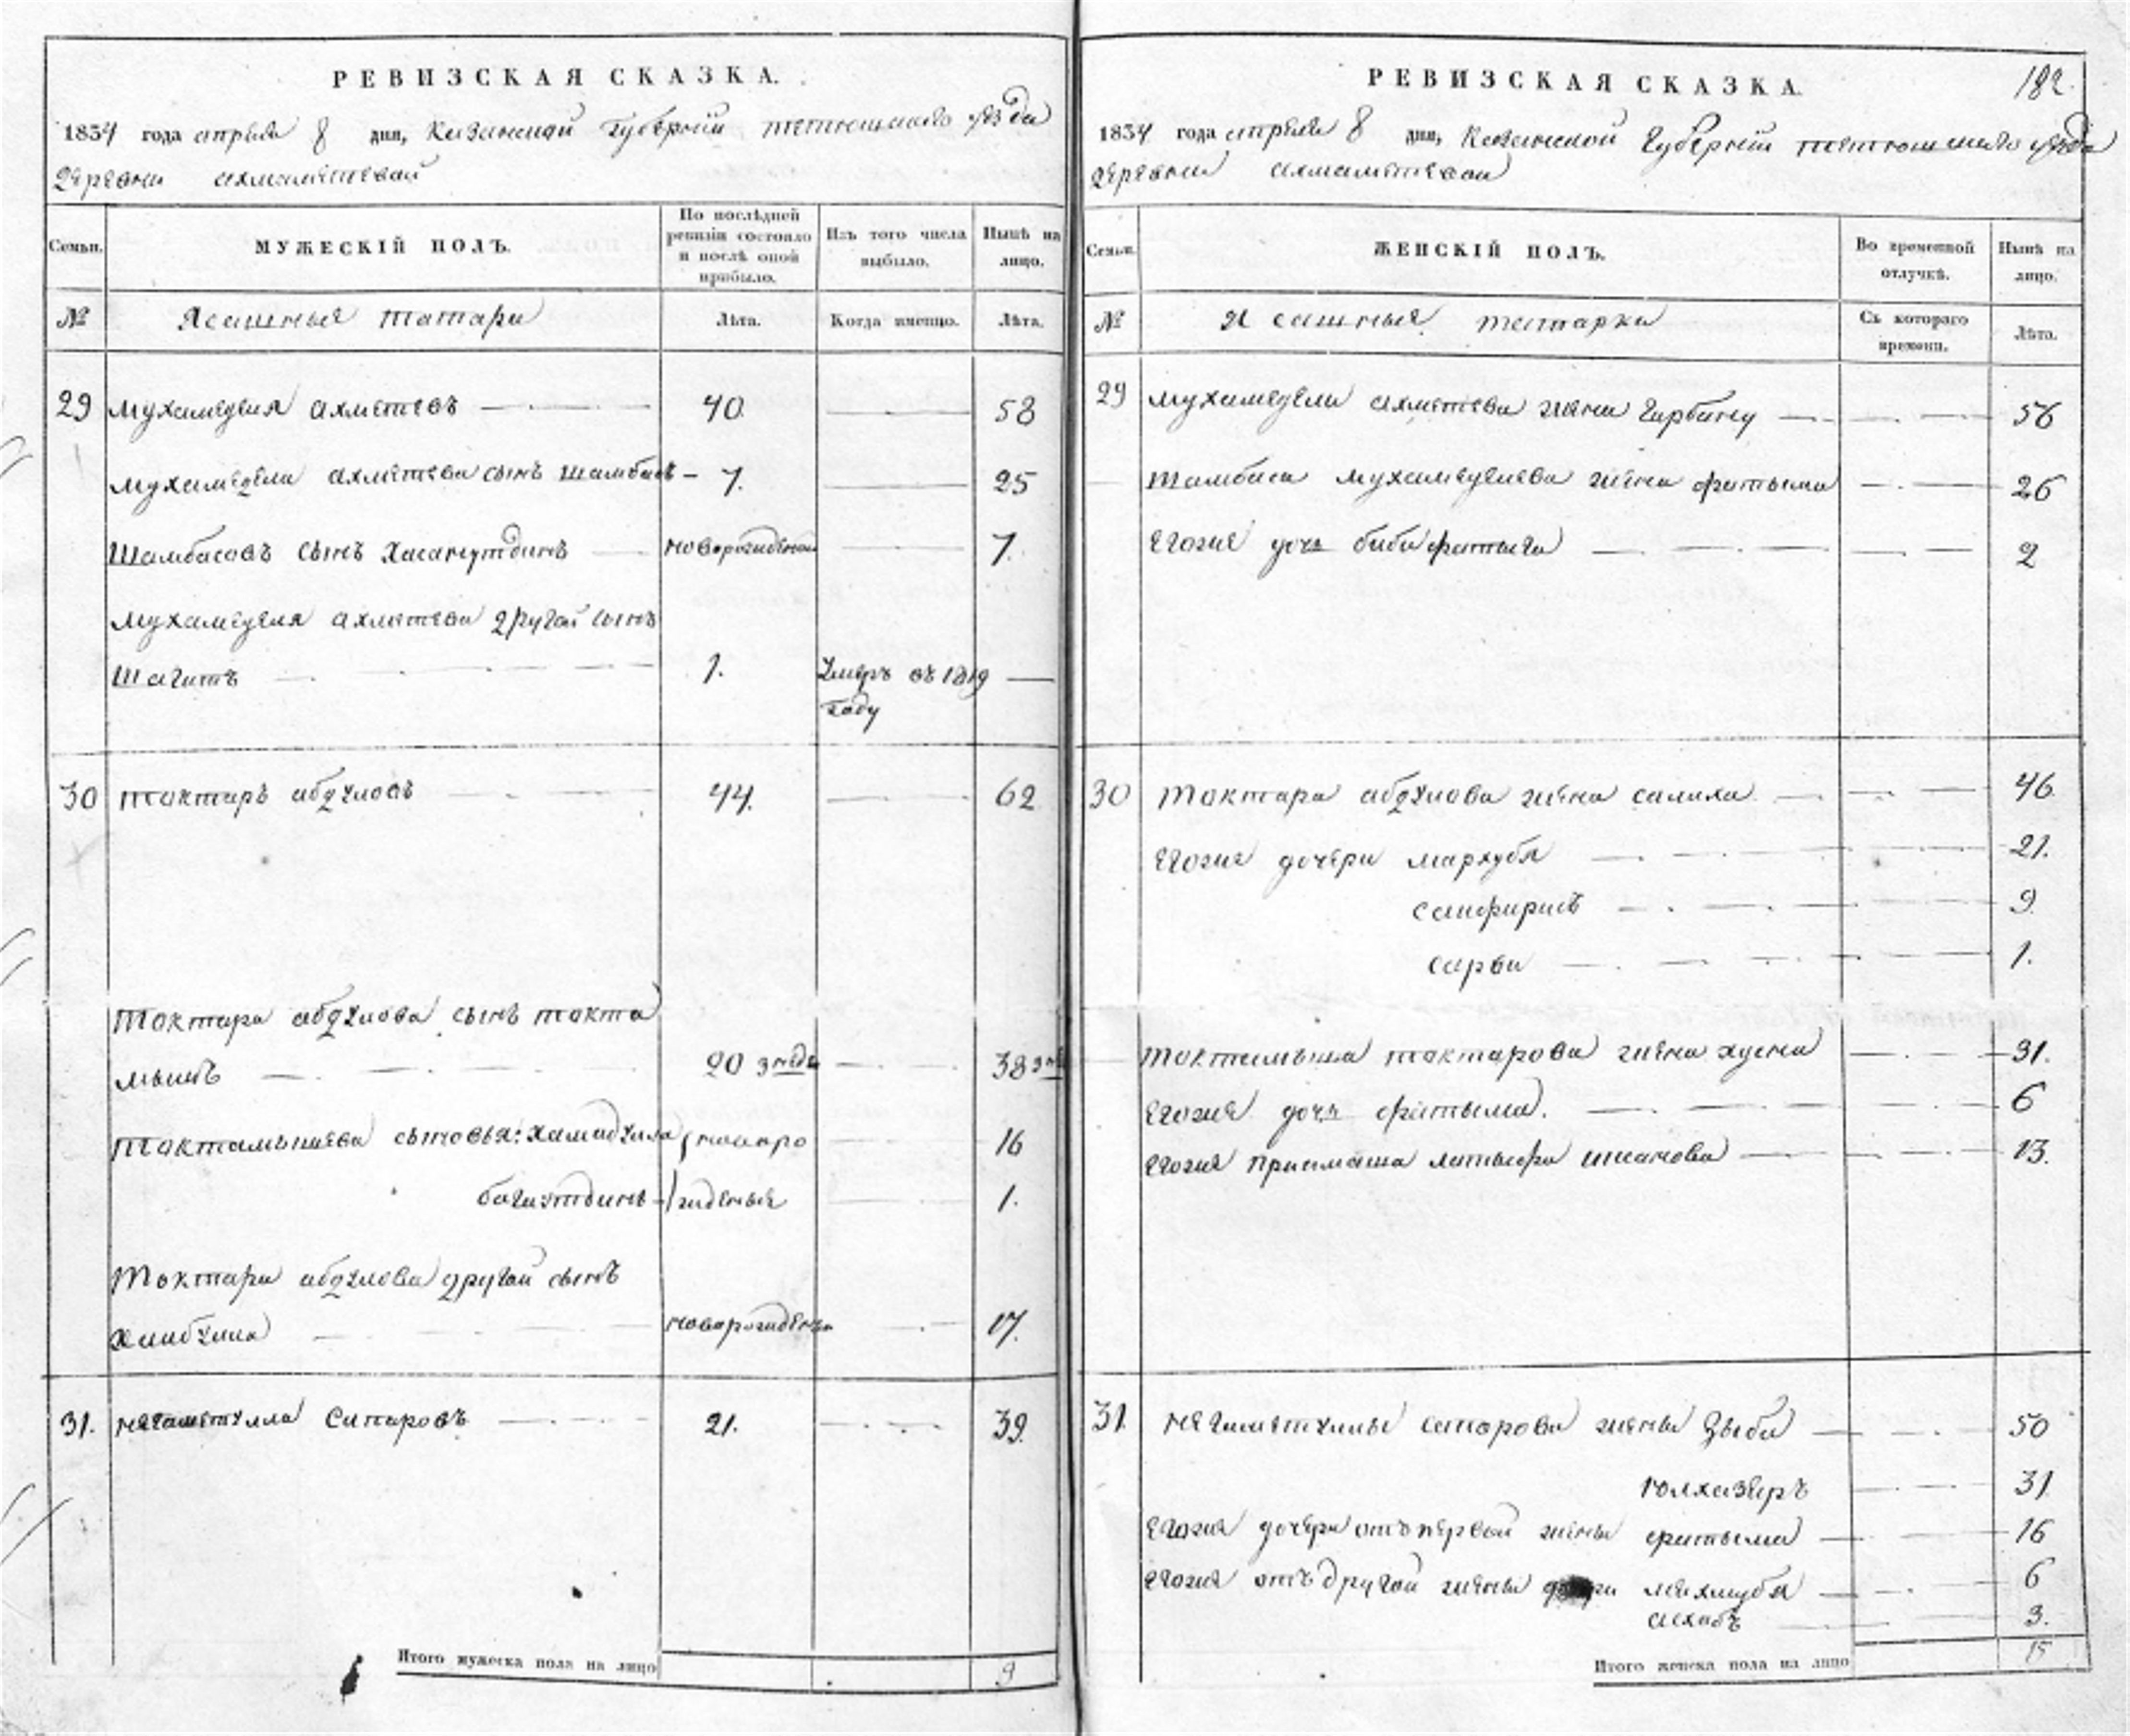 РЕВИЗСКАЯ СКАЗКА.
1834 года апреля 8 дня, Казанской губернии тетюшскаго уезда
деревни ахмаметевой
Семьи. МУЖЕСКІЙ ПОЛЪ. По послѣдней ревизіи состояло и послѣ оной прибыло. Изъ того числа выбыло. Нынѣ на лицо.
№ Ясашные татары Лѣта. Когда именно. Лѣта.
29 Мухамеделя ахметевъ 40. 58
Мухамеделя ахметева сынъ Шамбасъ 7. 25
Шамбасовъ сынъ Хасанутдинъ новорожденной 7.
Мухамеделя ахметева другай сынъ
Шагитъ 1. Умеръ въ 1819
году
30 Токтаръ абдуловъ 44. 62
Токтара абдулова сынъ токта
мышъ 20 38
Токтамышева сыновья: Хамидулла новоро 16
багаутдинъ жденныя 1.
Токтара абдулова другай сынъ
Хабибулла новорожденъ 17.
31. негаметулла Сапаровъ 21. 39.
Итого мужеска пола на лицо 9
РЕВИЗСКАЯ СКАЗКА. 182.
1834 года апреля 8 дня, Казанской губернии тетюшскаго уезда
деревни ахмаметевой
Семьи. ЖЕНСКІЙ ПОЛЪ. Во временной отлучкѣ. Нынѣ на лицо.
№ Ясашные татарки Съ котораго времени. Лѣта.
29 Мухамедели ахметева жена 56
Шамбаса Мухамеделева жена фатыма 26
Егоже дочь биби 2
30 Токтара абдулова жена салиха 46.
Егоже дочери мархубя 21.
9
сарви 1.
Токтамыша токтарова жена хусна 31.
Егоже дочь фатыма. 6
Егоже приемаша 13.
31 негаметуллы сапарова жены Зыба 50
Юлхазверъ 31
Егоже дочери отъ первой жены фатыма 16
Егоже отъ другой жены дочери махмубя 6
асхабъ 3.
Итого женска пола на лицо 15